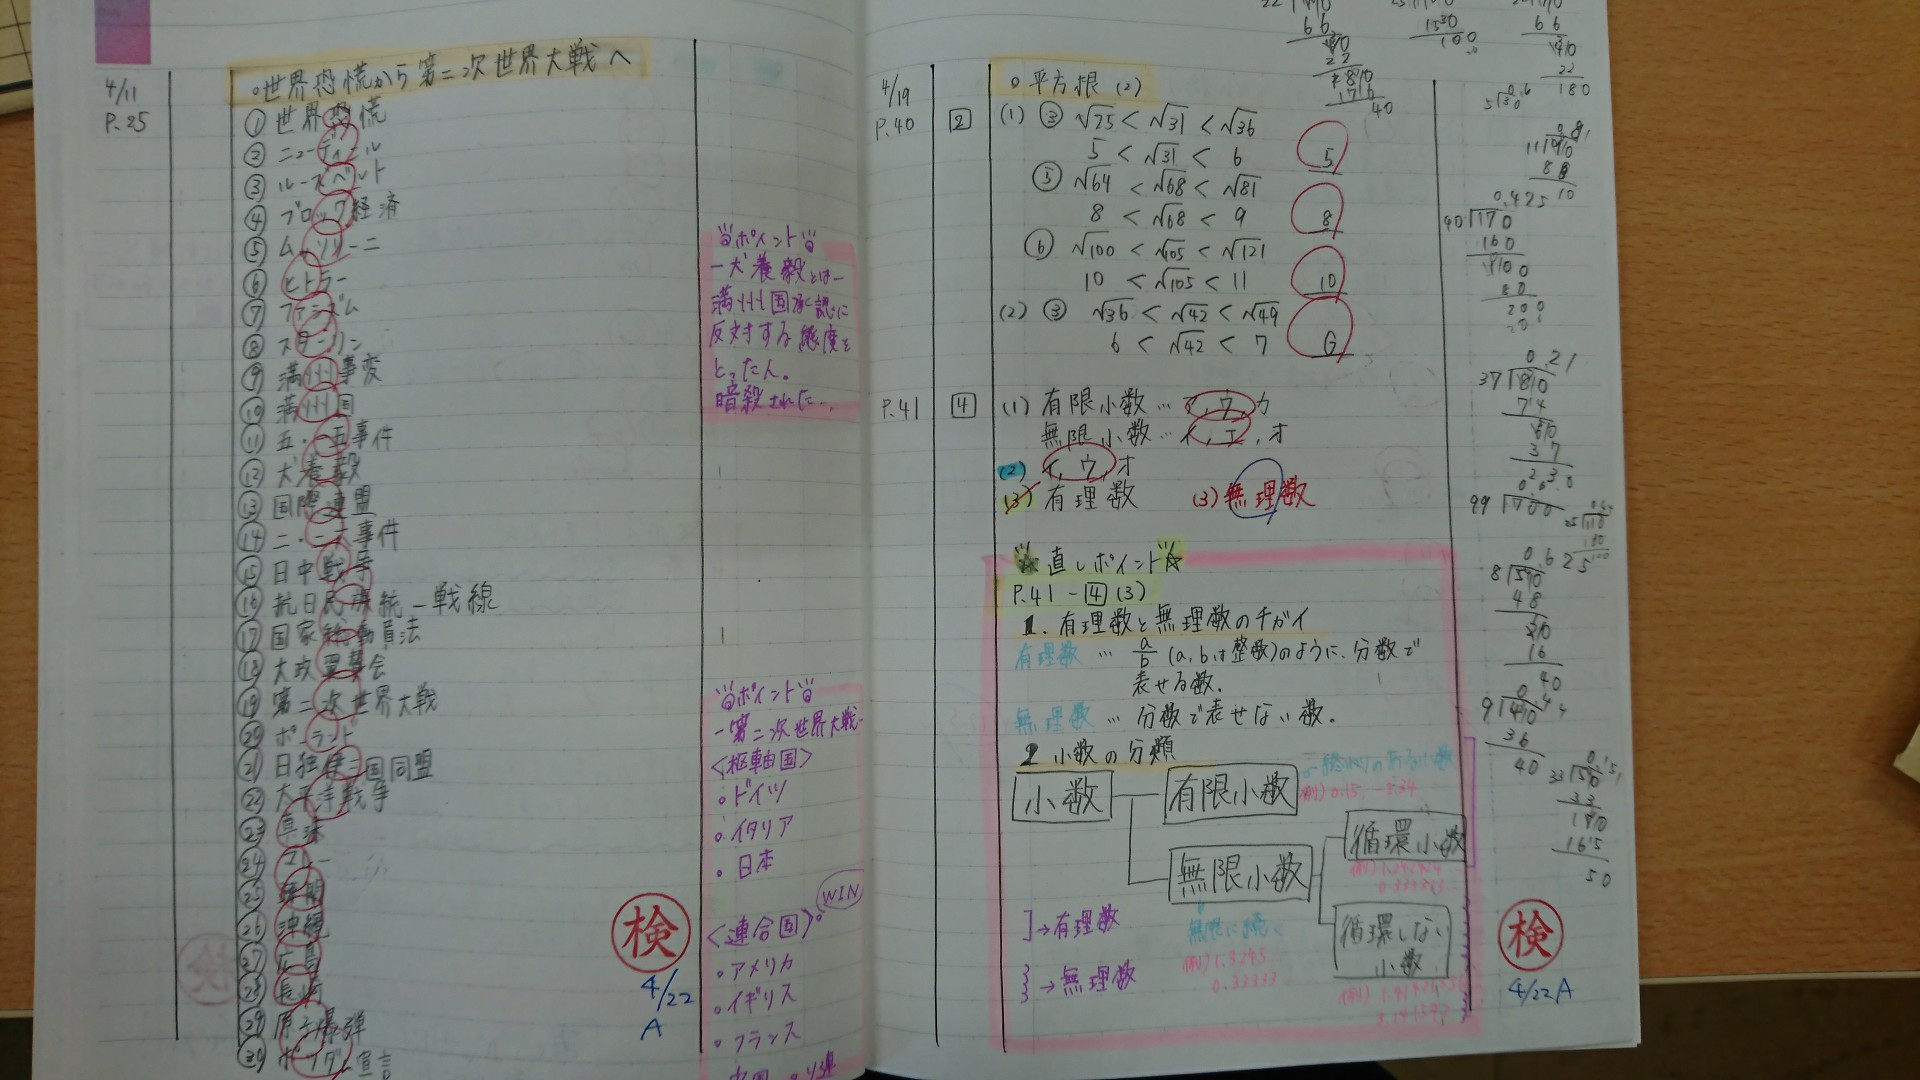 4/11
P.25
。世界恐慌から第二次世界大戦へ
① 世界恐慌
② ニューディール
③ ルーズベルト
④ ブロック経済
⑤ ムッソリーニ
⑥ ヒトラー
⑦ ファシズム
⑧ スターリン
⑨ 満州事変
⑩ 満州国
⑪ 五・一五事件
⑫ 犬養毅
⑬ 国際連盟
⑭ 二・二六事件
⑮ 日中戦争
⑯ 抗日民族統一戦線
⑰ 国家総動員法
⑱ 大政翼賛会
⑲ 第二次世界大戦
⑳ ポーランド
㉑ 日独伊三国同盟
㉒ 太平洋戦争
㉓ 真珠
㉔ マレー
㉕
㉖ 沖縄
㉗ 広島
㉘ 長崎
㉙ 原子爆弾
㉚ ポツダム宣言
ポイント
ー犬養毅とはー
満州国承認に
反対する態度を
とったん。
暗殺された…
ポイント
ー第二次世界大戦ー
<枢軸国>
。ドイツ
。イタリア
。日本
WIN
<連合国>
。アメリカ
。イギリス
。フランス
中国 。ソ連
検
4/22
A
4/19
P.40
2
。平方根(2)
(1) ③ √25 < √31 < √36
5 < √31 < 6
5
⑤ √64 < √68 < √81
8 < √68 < 9
8
⑥ √100 < √105 < √121
10 < √105 < 11
10
(2) ③ √36 < √42 < √49
6 < √42 < 7
6
P.41
4
(1) 有限小数… ア, ウ, カ
無限小数… イ, エ, オ
(2) イ, ウ, オ
(3) 有理数
(3) 無理数
☆直しポイント☆
P.41-4(3)
1. 有理数と無理数のチガイ
有理数 … a/b (a,bは整数)のように、分数で
表せる数。
無理数 … 分数で表せない数。
2 小数の分類
小数
有限小数
→終わりのある小数
例) 0.15, -3.54
無限小数
無限に続く
循環小数
循環しない
小数
] →有理数
} →無理数
検
4/22 A
0.425
40 170
160
200
0.21
37
74
37
99 700
0.625
8 50
48
16
40
9 40
36
40
33 50
33
165
50